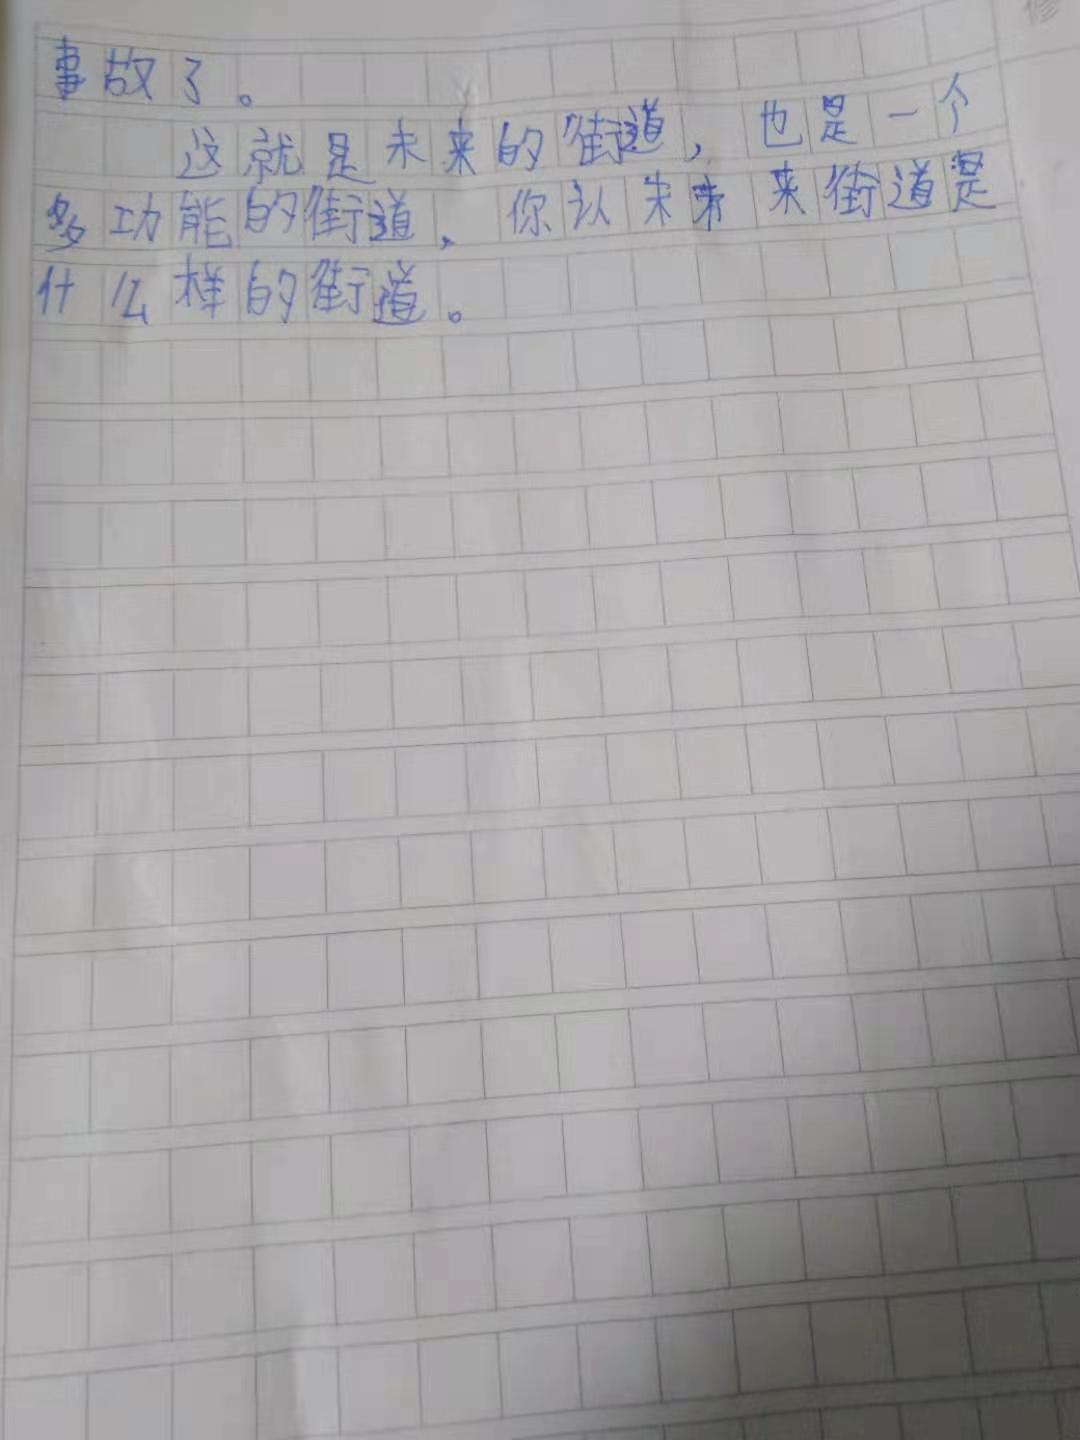 事故了。
这就是未来的街道，也是一个
多功能的街道，你认未来来街道是
什么样的街道。
修